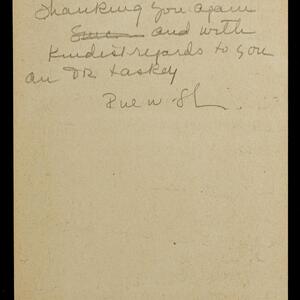 Thanking you again
and with
Kindest regards to you
an DR Laskey